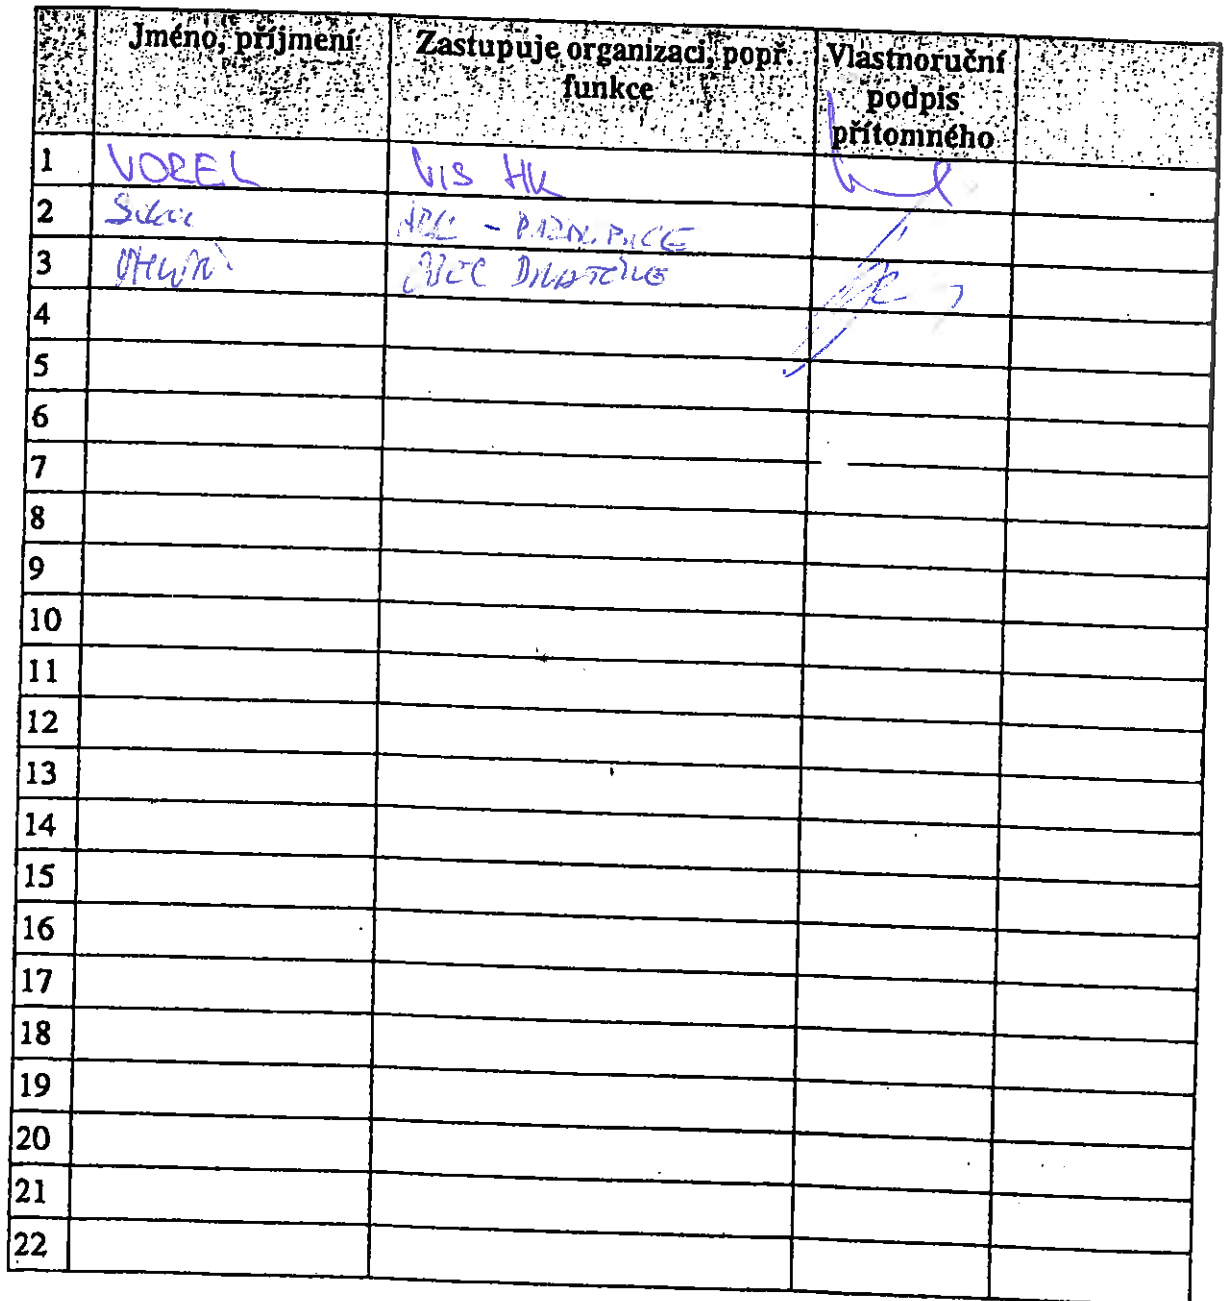 Jméno, příjmení
Zastupuje organizaci, popř.
funkce
Vlastnoruční
podpis
přítomného
1 VOREL VIS HK
2
3
4
5
6
7
8
9
10
11
12
13
14
15
16
17
18
19
20
21
22